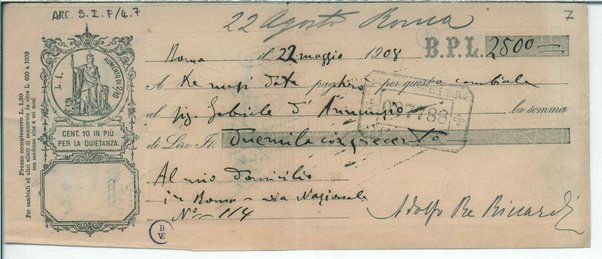 ARC. S. I. F/4. 7
22 Agosto Roma
7
Roma il 22 maggio 1908 B.P.L. 2500=
A tre mesi data pagherò per questa cambiale
al Sig. Gabriele d'Annunzio la somma
di Lire It. Duemila cinquecento
Al mio domicilio
in Roma - via Nazionale
N° 114
Adolfo Re Riccardi
L. 1.
AUMENTO DI 2/10
CENT. 10 IN PIÙ
PER LA QUIETANZA.
Prezzo complessivo L. 1,20
Per cambiali ed altri effetti di commercio da Lire 800 a 1000
con scadenza oltre a sei mesi
B
VE